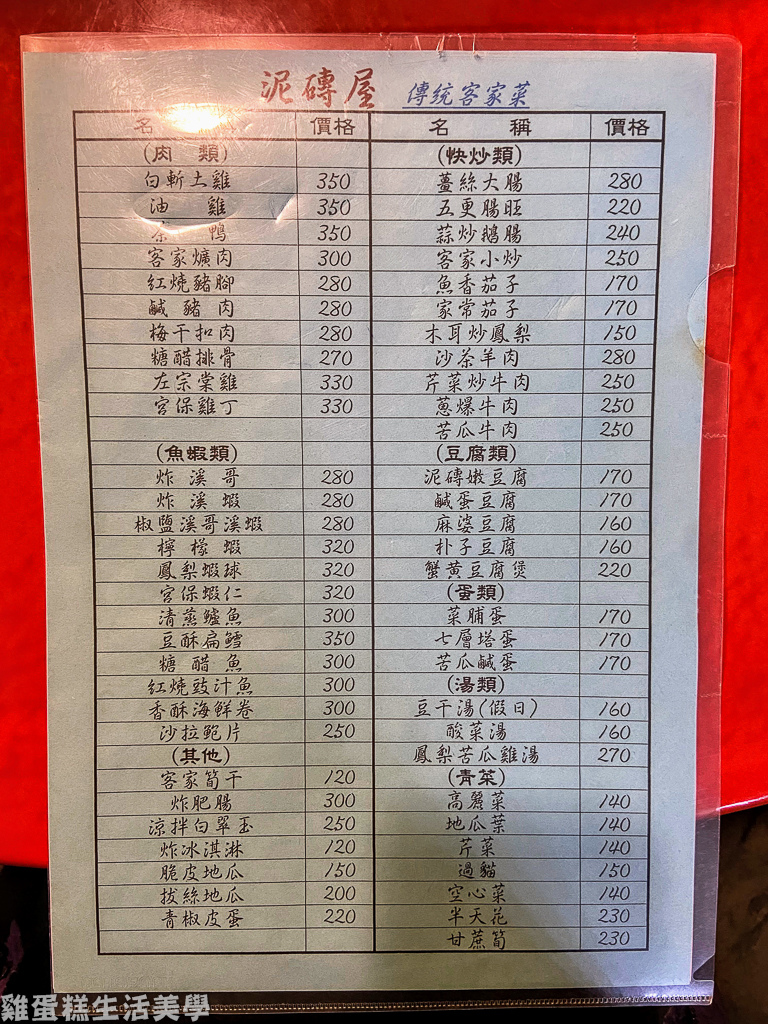 泥磚屋 傳統客家菜
名 稱 價格
(肉 類)
白斬土雞 350
油 雞 350
鴨 350
客家爌肉 300
紅燒豬腳 280
鹹豬肉 280
梅干扣肉 280
糖醋排骨 270
左宗棠雞 330
宮保雞丁 330
(魚蝦類)
炸溪哥 280
炸溪蝦 280
椒鹽溪哥溪蝦 280
檸檬蝦 320
鳳梨蝦球 320
宮保蝦仁 320
清蒸鱸魚 300
豆酥扁鱈 350
糖醋魚 300
紅燒豉汁魚 300
香酥海鮮卷 300
沙拉鮑片 250
(其他)
客家筍干 120
炸肥腸 300
涼拌白翠玉 250
炸冰淇淋 120
脆皮地瓜 150
拔絲地瓜 200
青椒皮蛋 220
名 稱 價格
(快炒類)
薑絲大腸 280
五更腸旺 220
蒜炒鵝腸 240
客家小炒 250
魚香茄子 170
家常茄子 170
木耳炒鳳梨 150
沙茶羊肉 280
芹菜炒牛肉 250
蔥爆牛肉 250
苦瓜牛肉 250
(豆腐類)
泥磚嫩豆腐 170
鹹蛋豆腐 170
麻婆豆腐 160
朴子豆腐 160
蟹黃豆腐煲 220
(蛋類)
菜脯蛋 170
七層塔蛋 170
苦瓜鹹蛋 170
(湯類)
豆干湯(假日) 160
酸菜湯 160
鳳梨苦瓜雞湯 270
(青菜)
高麗菜 140
地瓜葉 140
芹菜 140
過貓 150
空心菜 140
半天花 230
甘蔗筍 230
雞蛋糕生活美學